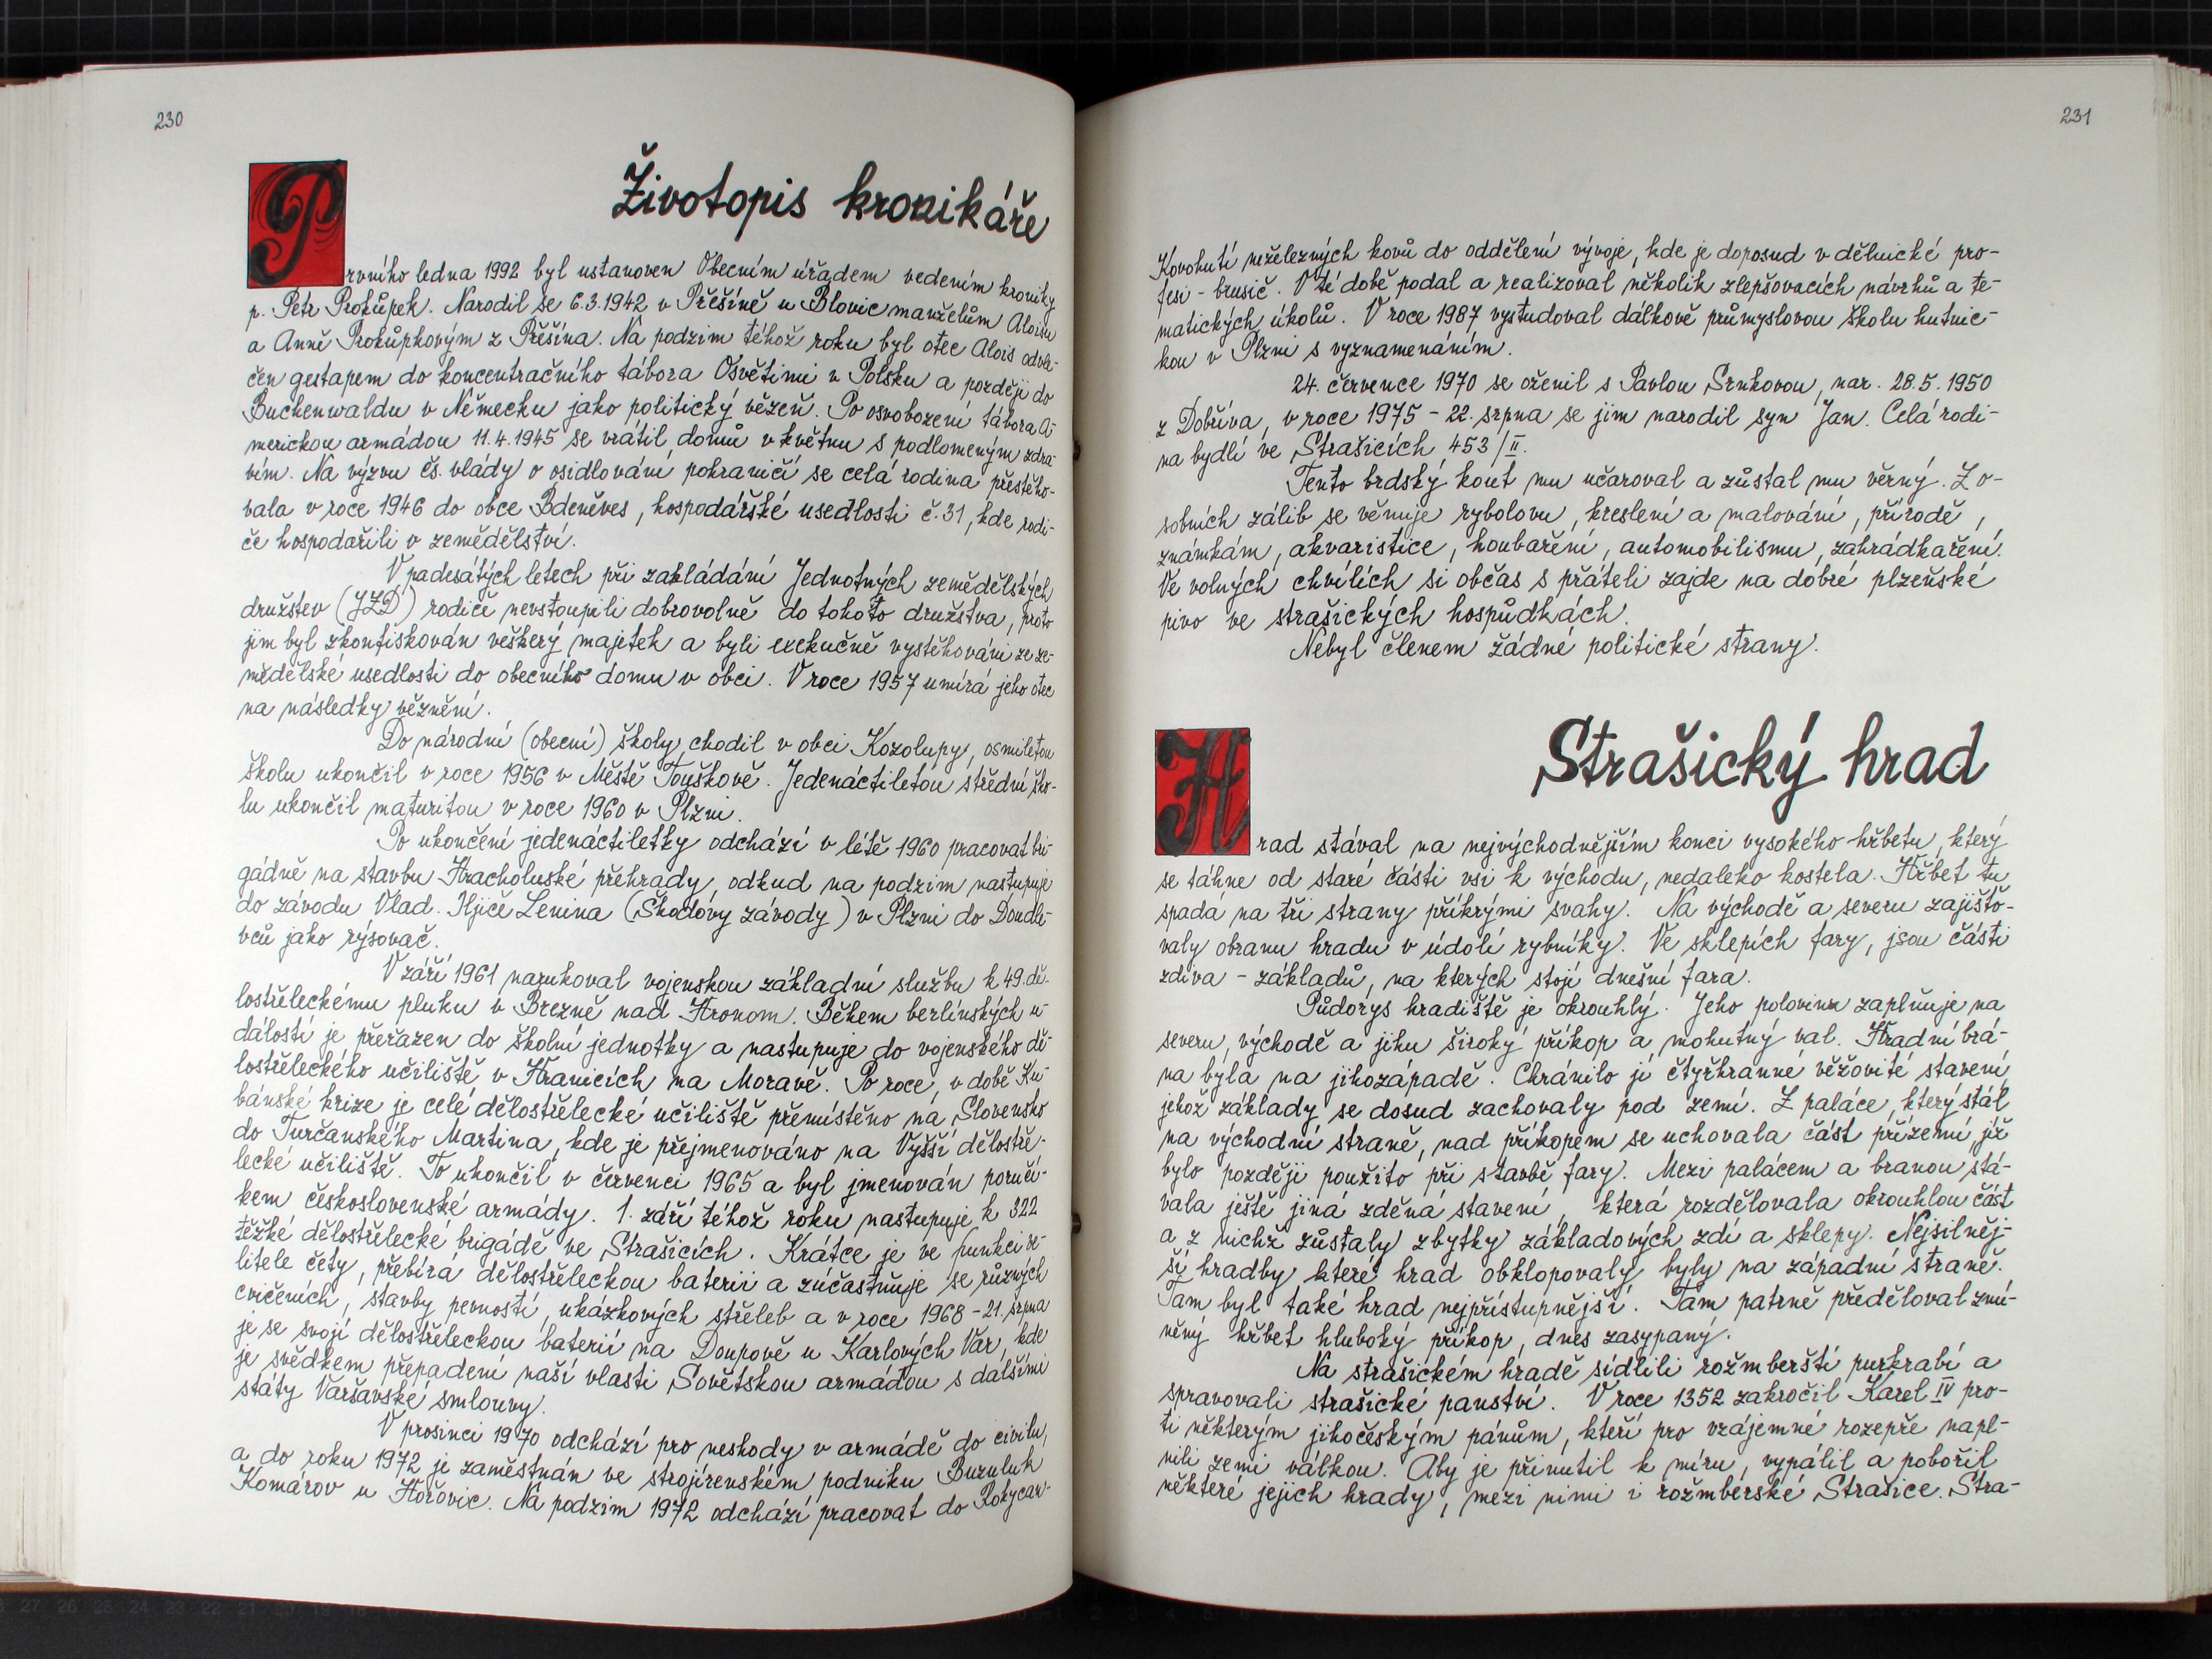 230
Životopis kronikáře
Prvního ledna 1992 byl ustanoven Obecním úřadem vedením kroniky
p. Petr Prokůpek. Narodil se 6.3.1942 v Přešíně u Blovic manželům Aloisu
a Anně Prokůpkovým z Přešína. Na podzim téhož roku byl otec Alois odvle-
čen gestapem do koncentračního tábora Osvětimi v Polsku a později do
Buchenwaldu v Německu jako politický vězeň. Po osvobození tábora A-
merickou armádou 11.4.1945 se vrátil domů v květnu s podlomeným zdra-
vím. Na výzvu čs. vlády o osidlování pohraničí se celá rodina přestěho-
vala v roce 1946 do obce Bdeněves, hospodářské usedlosti č. 31, kde rodi-
če hospodařili v zemědělství.
V padesátých letech při zakládání Jednotných zemědělských
družstev (JZD) rodiče nevstoupili dobrovolně do tohoto družstva, proto
jim byl zkonfiskován veškerý majetek a byli exekučně vystěhováni ze ze-
mědělské usedlosti do obecního domu v obci. V roce 1957 umírá jeho otec
na následky věznění.
Do národní (obecní) školy chodil v obci Kozolupy, osmiletou
školu ukončil v roce 1956 v Městě Touškově. Jedenáctiletou střední ško-
lu ukončil maturitou v roce 1960 v Plzni.
Po ukončení jedenáctiletky odchází v létě 1960 pracovat bri-
gádně na stavbu Hracholuské přehrady, odkud na podzim nastupuje
do závodu Vlad. Iljice Lenina (Škodovy závody) v Plzni do Doudle-
vců jako rýsovač.
V září 1961 narukoval vojenskou základní službu k 49. dě-
lostřeleckému pluku v Brezně nad Hronom. Během berlínských u-
dálostí je přeřazen do školní jednotky a nastupuje do vojenského dě-
lostřeleckého učiliště v Hranicích na Moravě. Po roce, v době Ku-
bánské krize je celé dělostřelecké učiliště přemístěno na Slovensko
do Turčanského Martina, kde je přejmenováno na Vyšší dělostře-
lecké učiliště. To ukončil v červenci 1965 a byl jmenován poručí-
kem československé armády. 1. září téhož roku nastupuje k 322
těžké dělostřelecké brigádě ve Strašicích. Krátce je ve funkci ve-
litele čety, přebírá dělostřeleckou baterii a zúčastňuje se různých
cvičeních, stavby pevností, ukázkových střeleb a v roce 1968 - 21. srpna
je se svojí dělostřeleckou baterií na Doupově u Karlových Var, kde
je svědkem přepadení naší vlasti Sovětskou armádou s dalšími
státy Varšavské smlouvy.
V prosinci 1970 odchází pro neshody v armádě do civilu,
a do roku 1972 je zaměstnán ve strojírenském podniku Buzuluk
Komárov u Hořovic. Na podzim 1972 odchází pracovat do Rokycan-
231
Kovohutí neželezných kovů do oddělení vývoje, kde je doposud v dělnické pro-
fesi - brusič. V té době podal a realizoval několik zlepšovacích návrhů a te-
matických úkolů. V roce 1987 vystudoval dálkově průmyslovou školu hutnic-
kou v Plzni s vyznamenáním.
24. července 1970 se oženil s Pavlou Srnkovou, nar. 28.5.1950
z Dobříva, v roce 1975 - 22. srpna se jim narodil syn Jan. Celá rodi-
na bydlí ve Strašicích 453/II.
Tento brdský kout mu učaroval a zůstal mu věrný. Z o-
sobních zálib se věnuje rybolovu, kreslení a malování, přírodě,
známkám, akvaristice, houbaření, automobilismu, zahrádkaření.
Ve volných chvílích si občas s přáteli zajde na dobré plzeňské
pivo ve strašických hospůdkách.
Nebyl členem žádné politické strany.
Strašický hrad
Hrad stával na nejvýchodnějším konci vysokého hřbetu, který
se táhne od staré části vsi k východu, nedaleko kostela. Hřbet tu
spadá na tři strany příkrými svahy. Na východě a severu zajišťo-
valy obranu hradu v údolí rybníky. Ve sklepích fary, jsou části
zdiva - základů, na kterých stojí dnešní fara.
Půdorys hradiště je okrouhlý. Jeho polovinu zaplňuje na
severu, východě a jihu široký příkop a mohutný val. Hradní brá-
na byla na jihozápadě. Chránilo ji čtyřhranné věžovité stavení,
jehož základy se dosud zachovaly pod zemí. Z paláce, který stál
na východní straně, nad příkopem se uchovala část přízemí jíž
bylo později použito při stavbě fary. Mezi palácem a branou stá-
vala ještě jiná zděná stavení, která rozdělovala okrouhlou část
a z nichž zůstaly zbytky základových zdí a sklepy. Nejsilněj-
ší hradby které hrad obklopovaly byly na západní straně.
Tam byl také hrad nejpřístupnější. Tam patrně předěloval zmí-
něný hřbet hluboký příkop, dnes zasypaný.
Na strašickém hradě sídlili rožmberští purkrabí a
spravovali strašické panství. V roce 1352 zakročil Karel IV pro-
ti některým jihočeským pánům, kteří pro vzájemné rozepře napl-
nili zemi válkou. Aby je přinutil k míru, vypálil a pobořil
některé jejich hrady, mezi nimi i rožmberské Strašice. Stra-